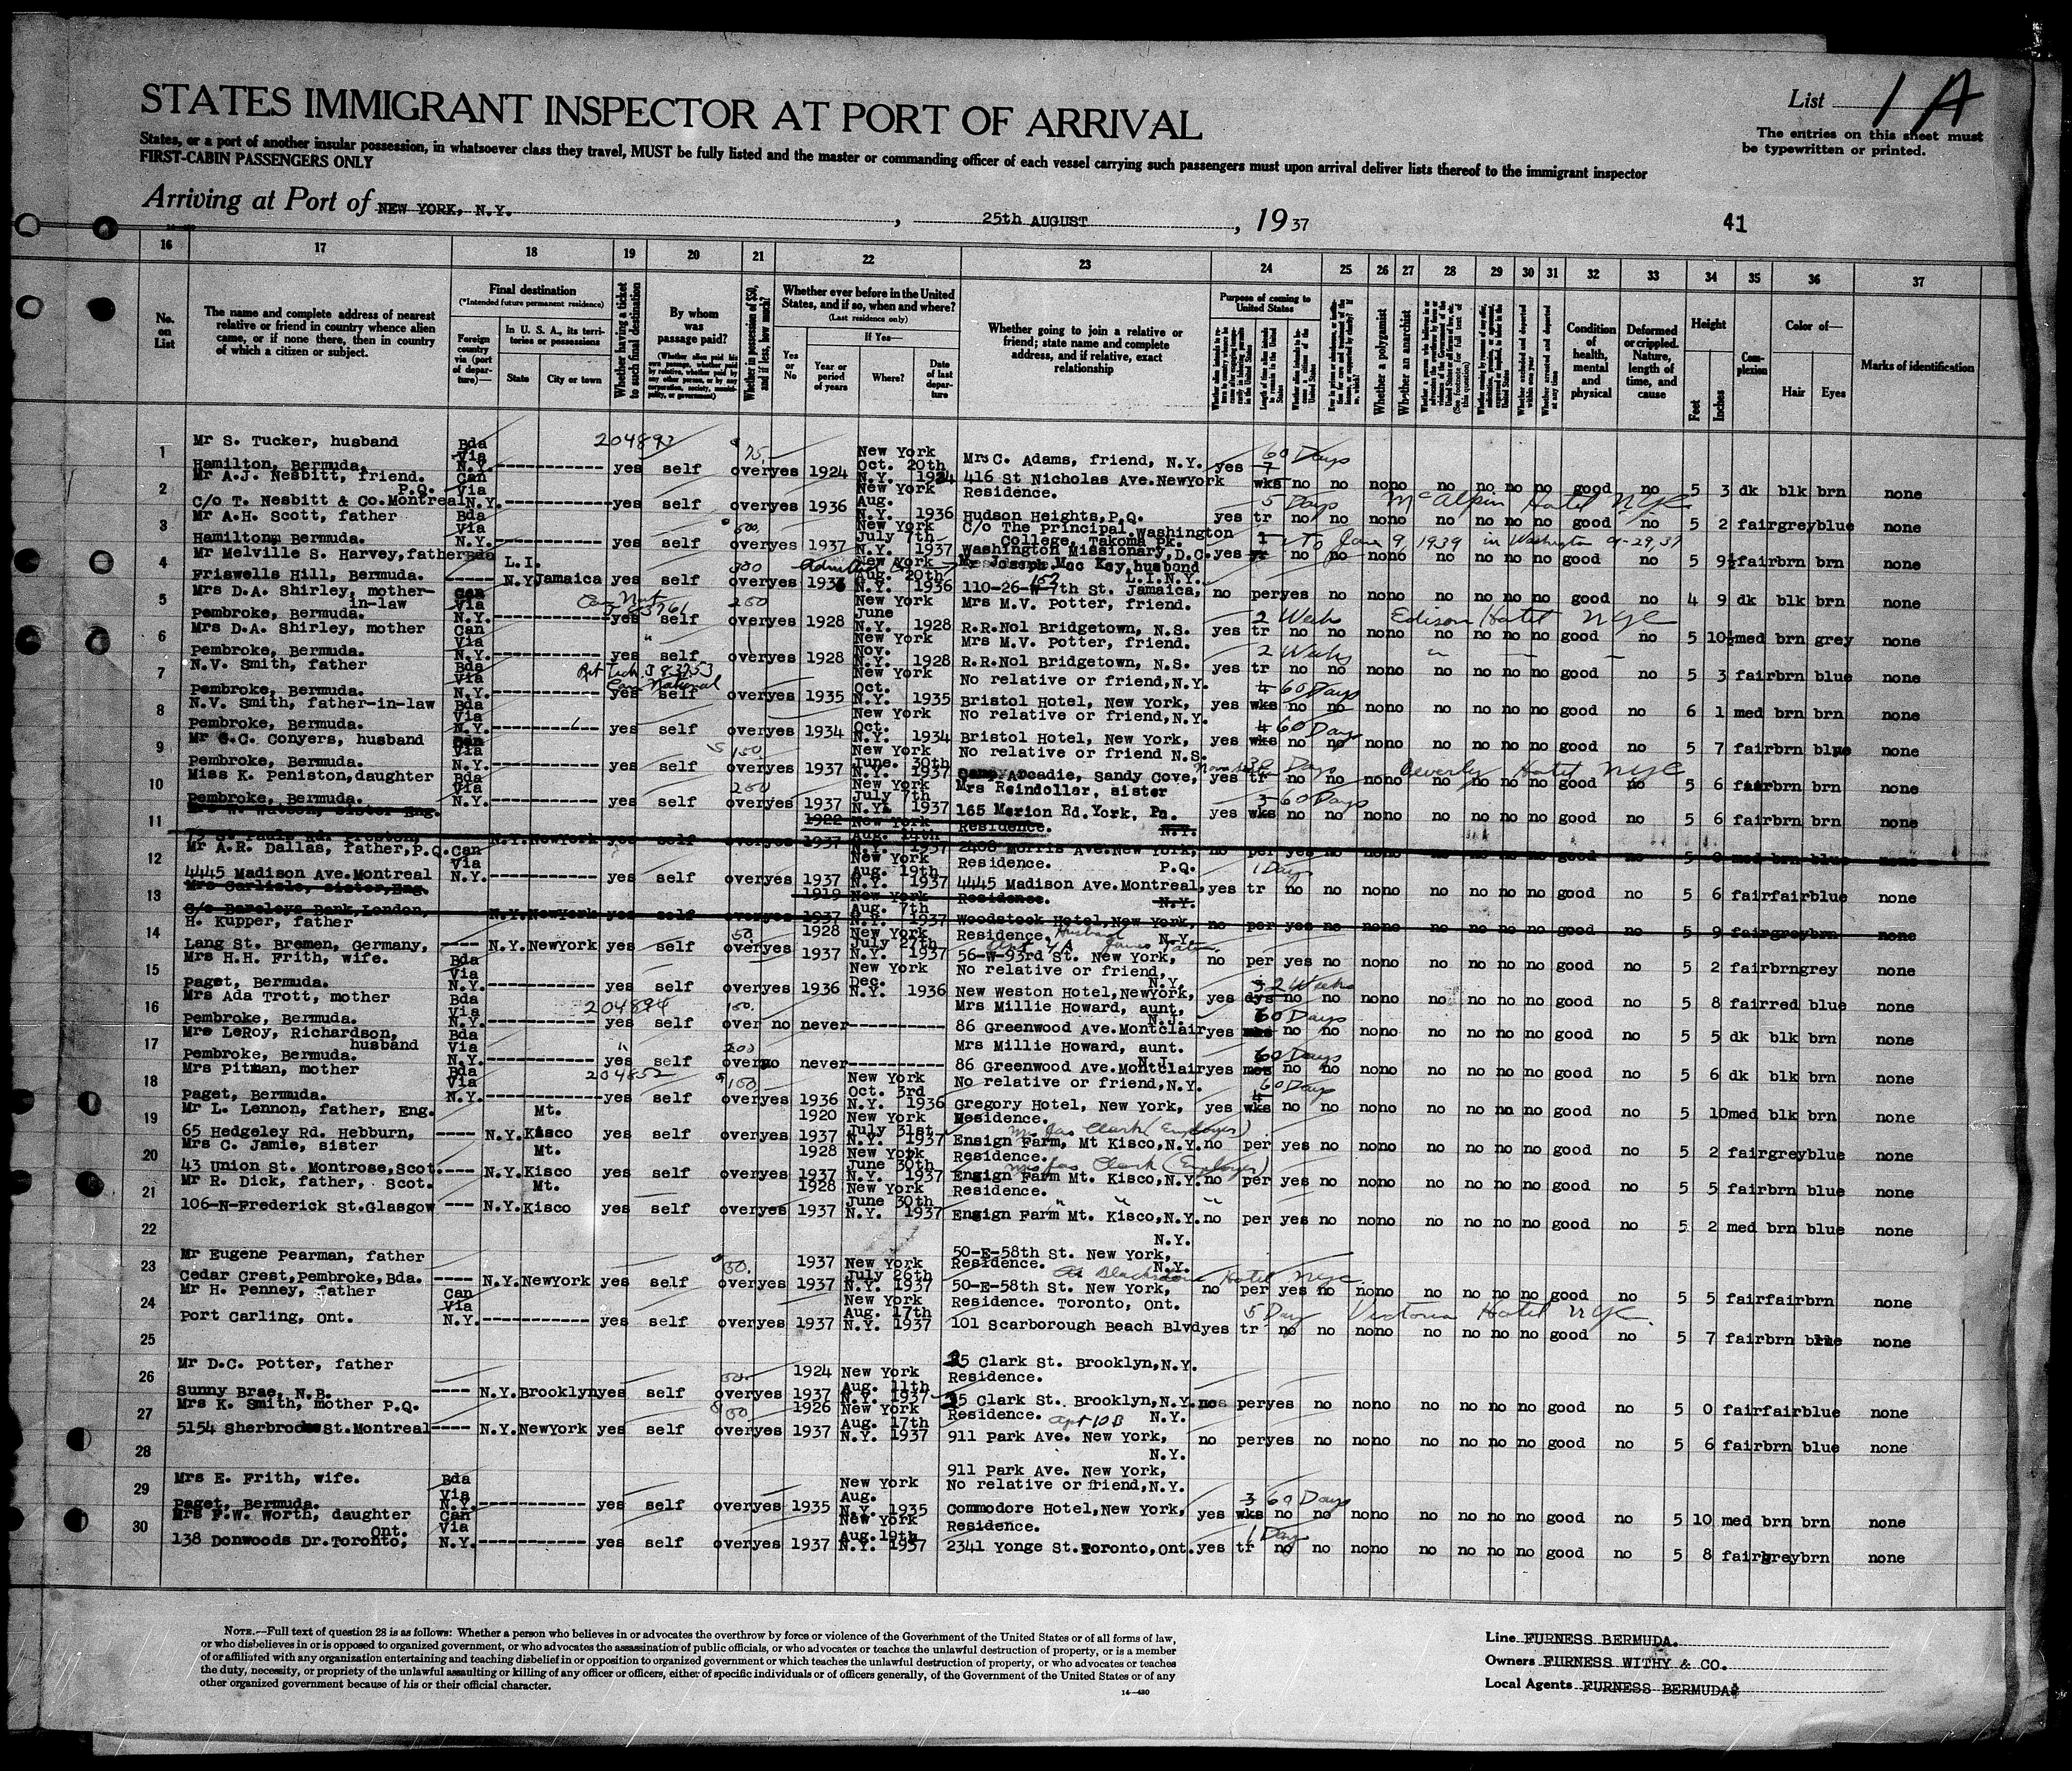 List 1 A
STATES IMMIGRANT INSPECTOR AT PORT OF ARRIVAL
The entries on this sheet must
be typewritten or printed.
States, or a port of another insular possession, in whatsoever class they travel, MUST be fully listed and the master or commanding officer of each vessel carrying such passengers must upon arrival deliver lists thereof to the immigrant inspector
FIRST-CABIN PASSENGERS ONLY
Arriving at Port of NEW YORK, N.Y. , 25th AUGUST , 19 37
41
16 17 18 19 20 21 22 23 24 25 26 27 28 29 30 31 32 33 34 35 36 37
No. on List
The name and complete address of nearest relative or friend in country whence alien came, or if none there, then in country of which a citizen or subject.
Final destination
(*Intended future permanent residence)
Foreign country via (port of departure)—
In U. S. A., its territories or possessions
State City or town
Whether having a ticket to such final destination
By whom was passage paid?
(Whether alien paid his own passage, whether paid by relative, whether paid by any other person, or by any corporation, society, municipality, or government)
Whether in possession of $50, and if less, how much?
Whether ever before in the United States, and if so, when and where?
(Last residence only)
Yes or No
If Yes—
Year or period of years Where? Date of last departure
Whether going to join a relative or friend; state name and complete address, and if relative, exact relationship
Purpose of coming to United States
Whether a polygamist
Whether an anarchist
Condition of health, mental and physical
Deformed or crippled. Nature, length of time, and cause
Height
Feet Inches
Complexion
Color of—
Hair Eyes
Marks of identification
1 Mr S. Tucker, husband
Hamilton, Bermuda. Bda Via N.Y. 204893 yes self over yes 1924 New York Oct. 20th N.Y. 1924 Mrs C. Adams, friend, N.Y. 416 St Nicholas Ave.NewYork yes 7 wks 60 Days no no no no no no no no good no 5 3 dk blk brn none
2 Mr A.J. Nesbitt, friend. P.Q.
C/o T. Nesbitt & Co.Montreal Can Via N.Y. yes self over yes 1936 New York Aug. N.Y. 1936 Residence. Hudson Heights,P.Q. yes tr 5 Days McAlpin Hotel NYC no no no no no no no no good no 5 2 fair grey blue none
3 Mr A.H. Scott, father
Hamilton, Bermuda. Bda Via N.Y. yes self over yes 1937 New York July 7th N.Y. 1937 C/o The Principal, Washington College, Takoma Pk. Washington Missionary,D.C. yes To June 9, 1939 in Washington no no no no no no no no good no 5 9½ fair brn brn none
4 Mr Melville S. Harvey,father
Friswells Hill, Bermuda. Bda ---- L.I. N.Y. Jamaica yes self 300 over yes New York Aug. 20th N.Y. 1936 Joseph Mac Kay, husband L.I.N.Y. 110-26-W-7th St. Jamaica, no per yes no no no no no no no good no 4 9 dk blk brn none
5 Mrs D.A. Shirley, mother-in-law
Pembroke, Bermuda. Can Via N.Y. yes self 250 over yes 1928 New York June N.Y. 1928 Mrs M.V. Potter, friend. R.R.No1 Bridgetown, N.S. yes tr 2 Weeks Edison Hotel NYC no no no no no no no no good no 5 10½ med brn grey none
6 Mrs D.A. Shirley, mother
Pembroke, Bermuda. Can Via N.Y. yes self over yes 1928 New York Nov. N.Y. 1928 Mrs M.V. Potter, friend. R.R.No1 Bridgetown, N.S. yes tr 2 Weeks no no no no no no no no good no 5 3 fair brn blue none
7 N.V. Smith, father
Pembroke, Bermuda. Bda Via N.Y. yes self over yes 1935 New York Oct. N.Y. 1935 No relative or friend,N.Y. Bristol Hotel, New York, yes 4 wks 60 Days no no no no no no no no good no 6 1 med brn brn none
8 N.V. Smith, father-in-law
Pembroke, Bermuda. Bda Via N.Y. yes self over yes 1934 New York Oct. N.Y. 1934 No relative or friend,N.Y. Bristol Hotel, New York, yes 4 wks 60 Days no no no no no no no no good no 5 7 fair brn blue none
9 Mr C.C. Conyers, husband
Pembroke, Bermuda. Via N.Y. yes self 150 over yes 1937 New York June. 30th N.Y. 1937 No relative or friend N.S. Camp Arcadie, Sandy Cove, yes tr Days Beverley Hotel NYC no no no no no no no no good no 5 6 fair brn brn none
10 Miss K. Peniston,daughter
Pembroke, Bermuda. Bda Via N.Y. yes self 250 over yes 1937 New York July 7th N.Y. 1937 Mrs Reindollar, sister 165 Marion Rd.York, Pa. yes 3 wks 60 Days no no no no no no no no good no 5 6 fair brn brn none
11 Mrs W. Watson, sister Eng.
75 St Pauls Rd. Preston, N.Y. NewYork yes self over yes 1922 1937 New York Aug. 14th N.Y. 1937 Residence. N.Y. 2408 Morris Ave.New York, no per yes no no no no no no no good no 5 8 med brn blue none
12 Mr A.R. Dallas, father,P.Q.
4445 Madison Ave.Montreal Can Via N.Y. yes self over yes 1937 New York Aug. 19th N.Y. 1937 Residence. P.Q. 4445 Madison Ave.Montreal, yes tr 1 Day no no no no no no no no good no 5 6 fair fair blue none
13 Mrs Carlisle, sister,Eng.
C/o Barcleys Bank,London, N.Y. NewYork yes self over yes 1919 1937 New York Aug. 7th N.Y. 1937 Residence. N.Y. Woodstock Hotel,New York, no per yes no no no no no no no good no 5 9 fair grey brn none
14 H. Kupper, father
Lang St. Bremen, Germany, ---- N.Y. NewYork yes self 50 over yes 1928 1937 New York July 27th N.Y. 1937 Residence. Husband N.Y. 56-W-93rd St. New York, no per yes no no no no no no no good no 5 2 fair brn grey none
15 Mrs H.H. Frith, wife.
Paget, Bermuda. Bda Via N.Y. yes self over yes 1936 New York Dec. N.Y. 1936 No relative or friend, N.Y. New Weston Hotel,NewYork, yes dys 2 Weeks no no no no no no no no good no 5 8 fair red blue none
16 Mrs Ada Trott, mother
Pembroke, Bermuda. Bda Via N.Y. 204894 yes self 150. over no never Mrs Millie Howard, aunt, N.J. 86 Greenwood Ave.Montclair yes 60 Days no no no no no no no no good no 5 5 dk blk brn none
17 Mrs LeRoy, Richardson, husband
Pembroke, Bermuda. Bda Via N.Y. " yes self 200 over no never Mrs Millie Howard, aunt. N.J. 86 Greenwood Ave.Montclair yes mos 60 Days no no no no no no no no good no 5 6 dk blk brn none
18 Mrs Pitman, mother
Paget, Bermuda. Bda Via N.Y. 204852 yes self 100 over yes 1936 New York Oct. 3rd N.Y. 1936 No relative or friend,N.Y. Gregory Hotel, New York, yes 4 wks 60 Days no no no no no no no no good no 5 10 med blk brn none
19 Mr L. Lennon, father, Eng.
65 Hedgeley Rd. Hebburn, ---- N.Y. Mt. Kisco yes self over yes 1920 1937 New York July 31st N.Y. 1937 Residence. Mrs Jas Clark (Employer) Ensign Farm, Mt Kisco,N.Y. no per yes no no no no no no no good no 5 2 fair grey blue none
20 Mrs C. Jamie, sister
43 Union St. Montrose,Scot. ---- N.Y. Mt. Kisco yes self over yes 1928 1937 New York June 30th N.Y. 1937 Residence. Mrs Jas Clark (Employer) Ensign Farm Mt. Kisco,N.Y. no per yes no no no no no no no good no 5 5 fair brn blue none
21 Mr R. Dick, father, Scot.
106-N-Frederick St.Glasgow ---- N.Y. Mt. Kisco yes self over yes 1928 1937 New York June 30th N.Y. 1937 Residence. " " " Ensign Farm Mt. Kisco,N.Y. no per yes no no no no no no no good no 5 2 med brn blue none
22 N.Y. 50-E-58th St. New York,
23 Mr Eugene Pearman, father
Cedar Crest,Pembroke,Bda. ---- N.Y. NewYork yes self 50. over yes 1937 1937 New York July 26th N.Y. 1937 Residence. N.Y. Hotel NYC 50-E-58th St. New York, no per yes no no no no no no no good no 5 5 fair fair brn none
24 Mr H. Penney, father
Port Carling, Ont. Can Via N.Y. yes self over yes 1937 New York Aug. 17th N.Y. 1937 Residence. Toronto, Ont. 101 Scarborough Beach Blvd yes tr 5 Day Victoria Hotel NYC. no no no no no no no no good no 5 7 fair brn blue none
25 25 Clark St. Brooklyn,N.Y.
26 Mr D.C. Potter, father
Sunny Brae, N.B. ---- N.Y. Brooklyn yes self 50. over yes 1924 1937 New York Aug. 11th N.Y. 1937 Residence. 25 Clark St. Brooklyn,N.Y. no per yes no no no no no no no good no 5 0 fair fair blue none
27 Mrs K. Smith, mother P.Q.
5154 Sherbrooke St.Montreal ---- N.Y. NewYork yes self 50 over yes 1926 1937 New York Aug. 17th N.Y. 1937 Residence. Apt 10B N.Y. 911 Park Ave. New York, no per yes no no no no no no no good no 5 6 fair brn blue none
28 N.Y. 911 Park Ave. New York,
29 Mrs E. Frith, wife.
Paget, Bermuda. Bda Via N.Y. yes self over yes 1935 New York Aug. N.Y. 1935 No relative or friend,N.Y. Commodore Hotel,New York, yes 3 wks 60 Days no no no no no no no no good no 5 10 med brn brn none
30 Mrs F.W. Worth, daughter
138 Donwoods Dr.Toronto, Ont. Can Via N.Y. yes self over yes 1937 New York Aug.19th N.Y. 1937 Residence. 2341 Yonge St.Toronto,Ont. yes tr 1 Day no no no no no no no no good no 5 8 fair grey brn none
NOTE.—Full text of question 28 is as follows: Whether a person who believes in or advocates the overthrow by force or violence of the Government of the United States or of all forms of law,
or who disbelieves in or is opposed to organized government, or who advocates the assassination of public officials, or who advocates or teaches the unlawful destruction of property, or is a member
of or affiliated with any organization entertaining and teaching disbelief in or opposition to organized government or which teaches the unlawful destruction of property, or who advocates or teaches
the duty, necessity, or propriety of the unlawful assaulting or killing of any officer or officers, either of specific individuals or of officers generally, of the Government of the United States or of any
other organized government because of his or their official character.
14—430
Line FURNESS BERMUDA.
Owners FURNESS WITHY & CO.
Local Agents FURNESS BERMUDA